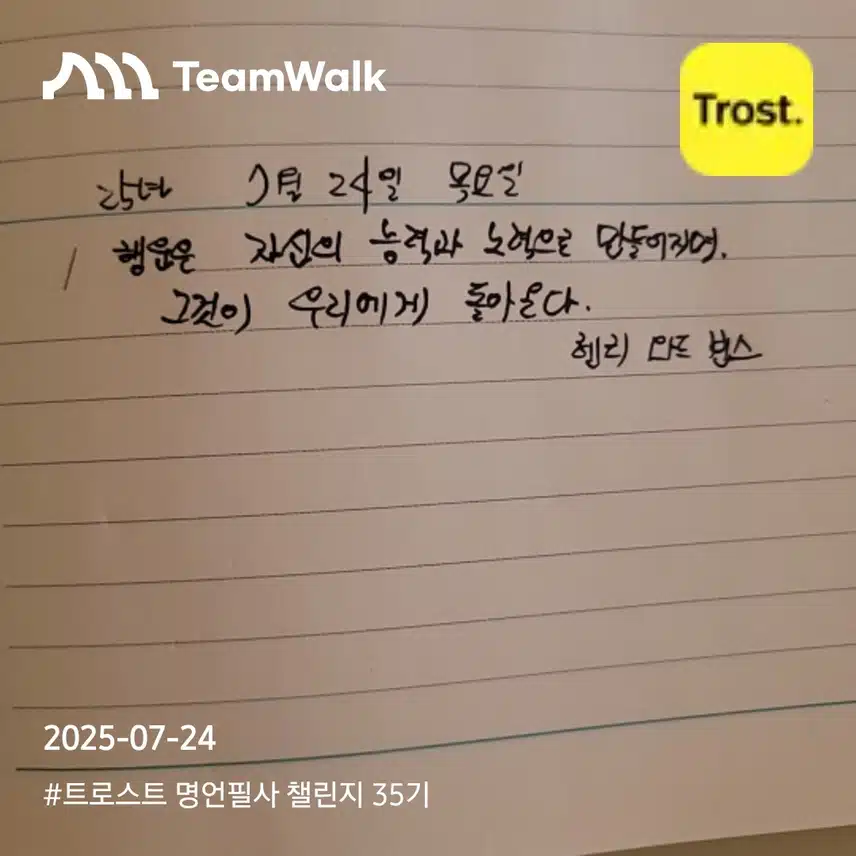 TeamWalk
Trost.
25년 7월 24일 목요일
행운은 자신의 능력과 노력으로 만들어지며.
그것이 우리에게 돌아온다.
헨리 반스
2025-07-24
#트로스트 명언필사 챌린지 35기